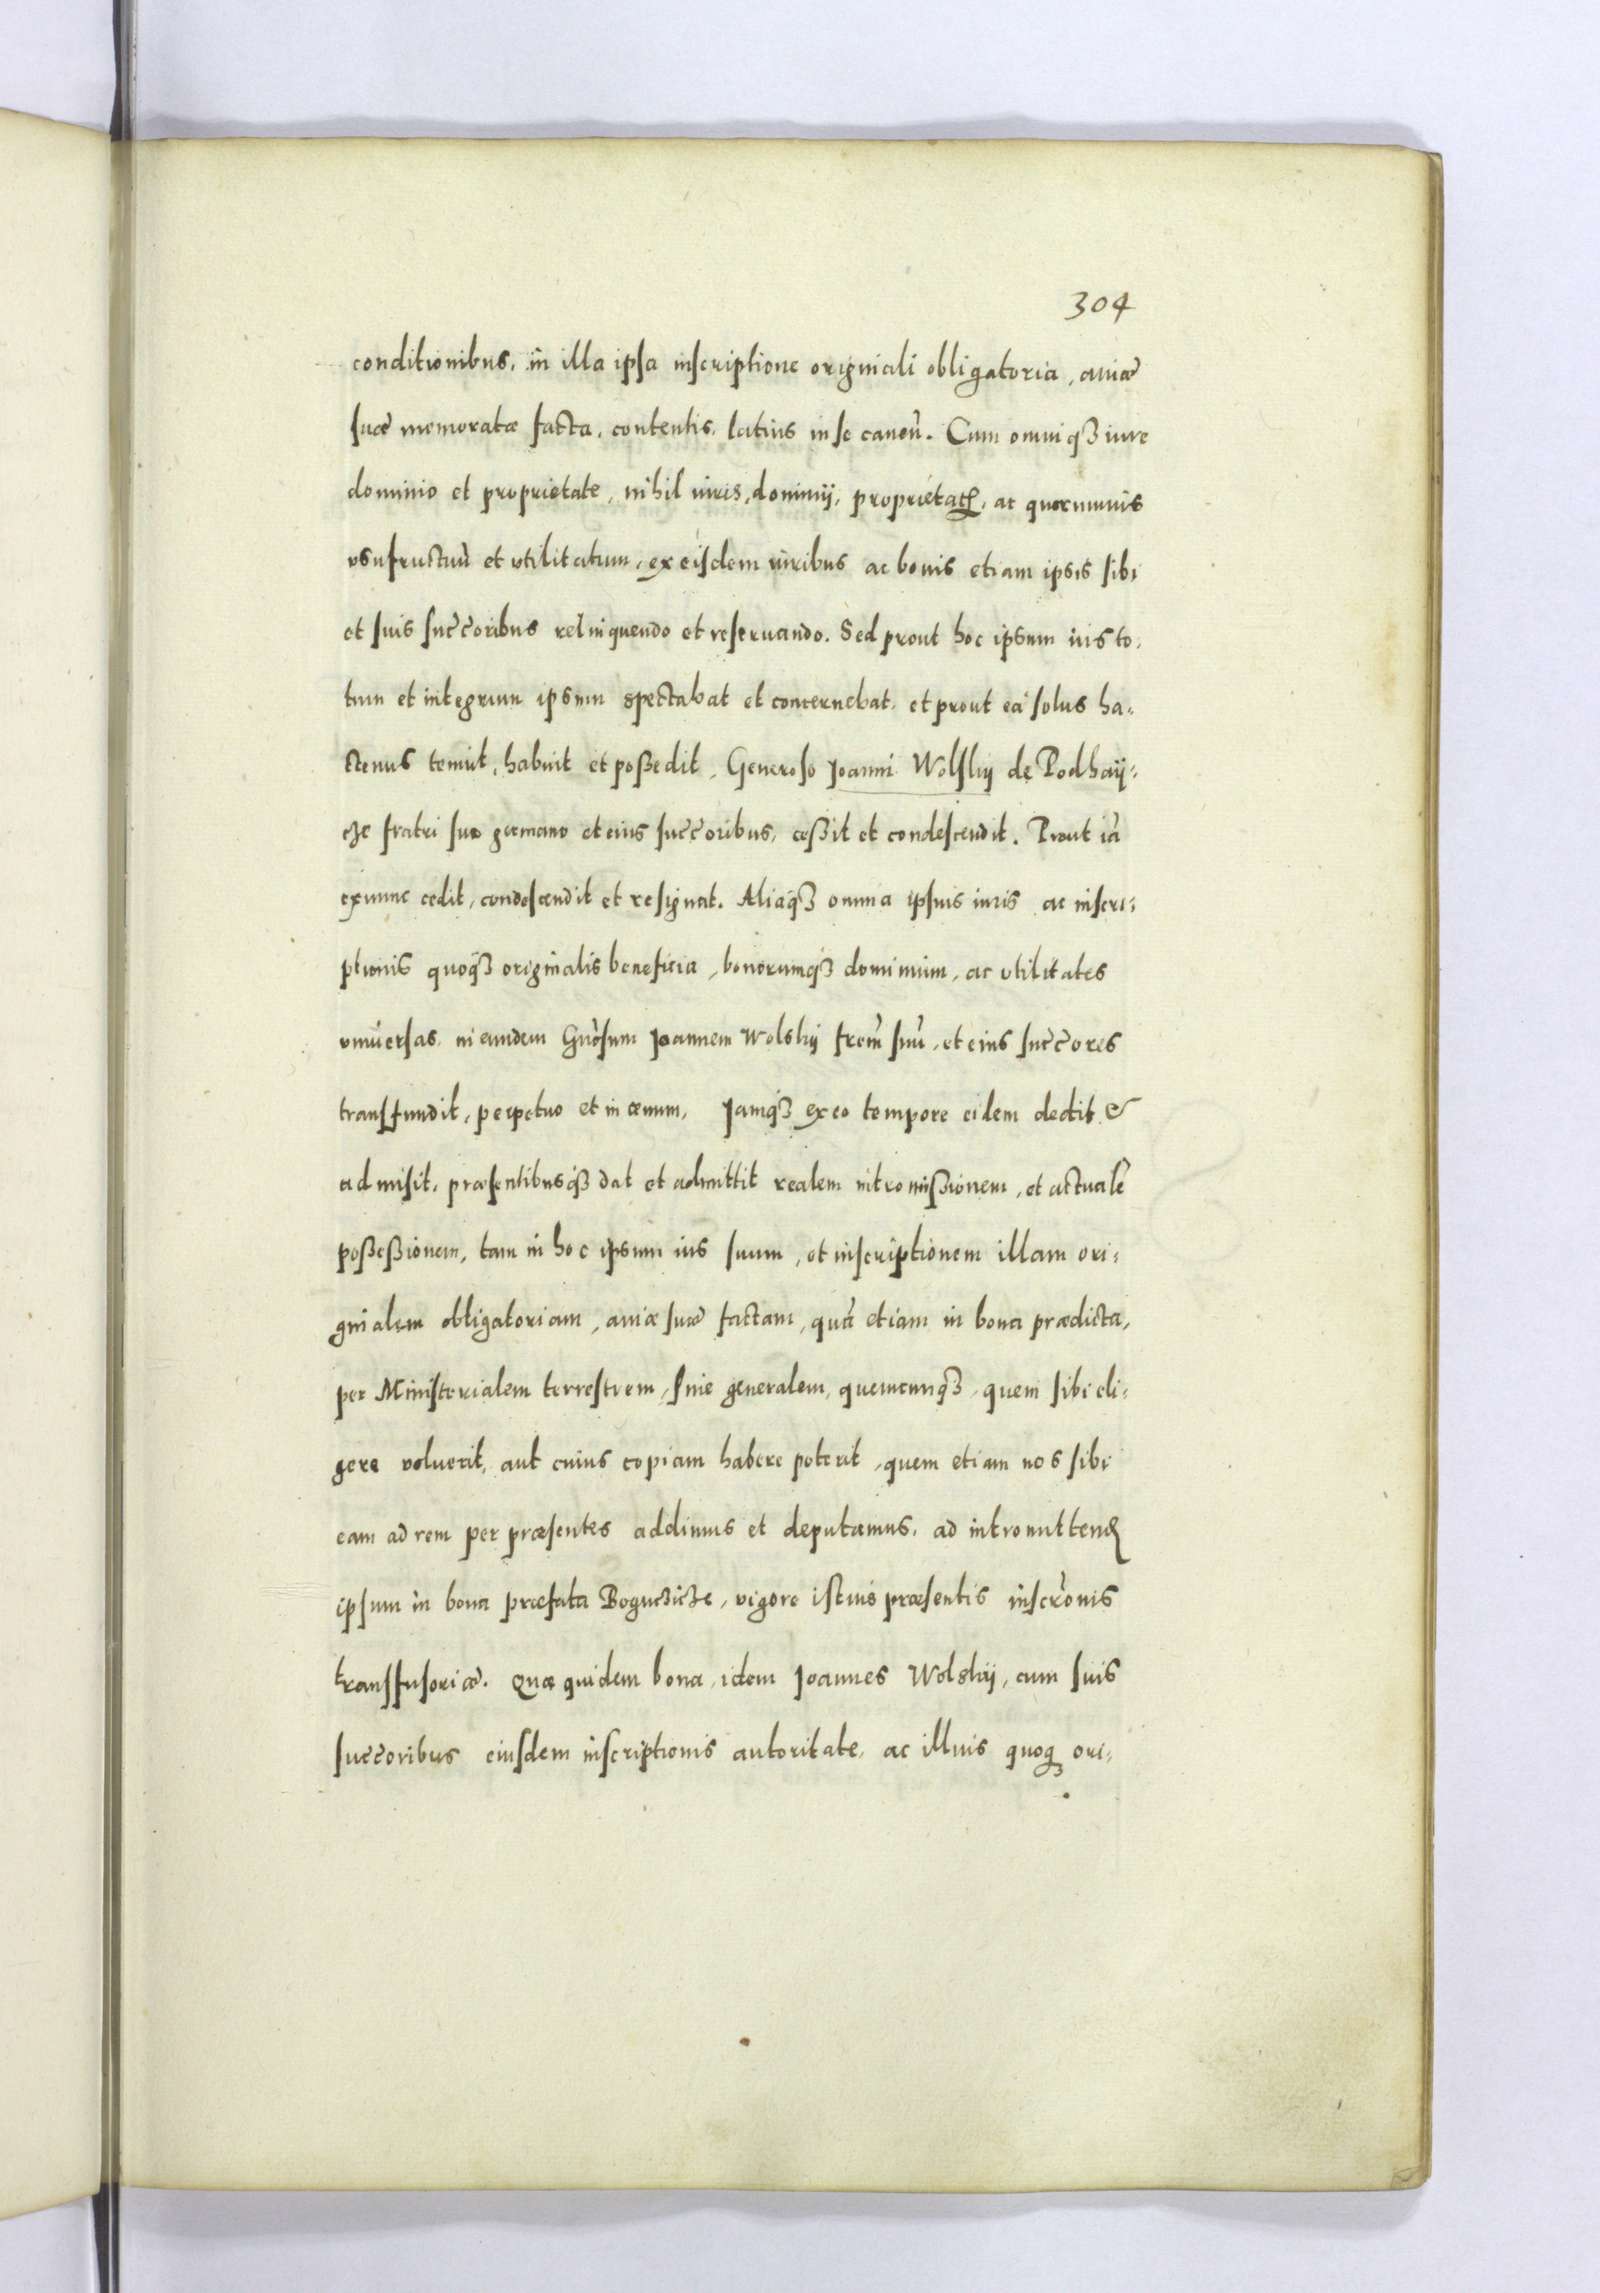 304
conditionibus, in illa ipsa inscriptione originali obligatoria, auiæ
suæ memoratæ facta, contentis, latius in se caneñ. Cum omniqȝ iure
dominio et proprietate, nihil iuris, dominij, proprietatꝭ, ac quorumuis
vsufructuũ et vtilitatum, ex eisdem iuribus ac bonis etiam ipsis sibi
et suis succ̃oribus relinquendo et reseruando. Sed prout hoc ipsum ius to-
tum et integrum ipsum spectabat et concernebat, et prout ea solus ha-
ctenus tenuit, habuit et possedit, Generoso Joanni Wolskij de Podhaij-
cze fratri suo germano et eius succ̃oribus, cessit et condescendit. Prout iã
exnunc cedit, condescendit et resignat. Aliaqȝ omnia ipsius iuris ac inscri-
ptionis quoqȝ originalis beneficia, bonorumqȝ dominium, ac vtilitates
vniuersas, in eundem Gnõsum Joannem Wolskij frem̃ suũ, et eius succ̃ores
transfundit, perpetuo et in æuum, Jamqȝ ex eo tempore eidem dedit &
admisit, præsentibusqȝ dat et admittit realem intromissionem, et actualẽ
possessionem, tam in hoc ipsum ius suum, et inscriptionem illam ori-
ginalem obligatoriam, auiæ suæ factam, quã etiam in bona prædicta,
per Ministerialem terrestrem, siue generalem, quemcunqȝ, quem sibi eli-
gere voluerit, aut cuius copiam habere poterit, quem etiam nos sibi
eam ad rem per præsentes addimus et deputamus, ad intromittenđ
ipsum in bona præfata Boguczicze, vigore istius præsentis inscrõnis
transfusoriæ. Quæ quidem bona, idem Joannes Wolskij, cum suis
succ̃oribus eiusdem inscriptionis autoritate, ac illius quoqȝ ori-